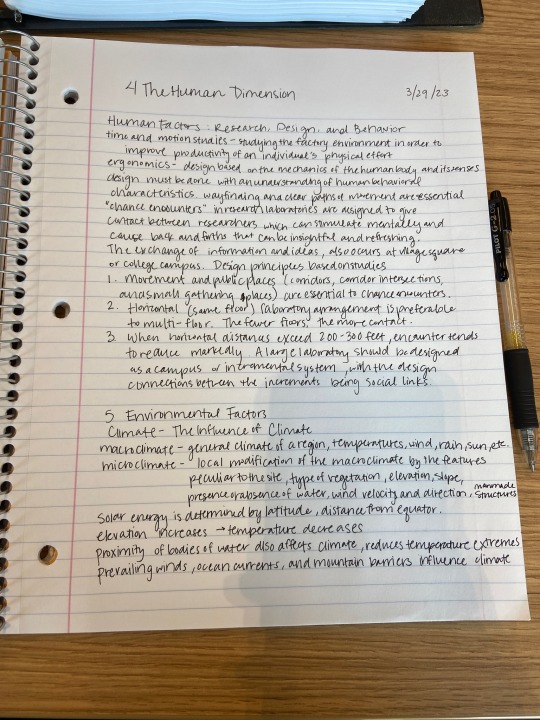 4 The Human Dimension
3/29/23
Human Factors: Research, Design, and Behavior
time and motion studies - studying the factory environment in order to
improve productivity of an individual's physical effort
ergonomics - design based on the mechanics of the human body and its senses
design must be done with an understanding of human behavioral
characteristics. wayfinding and clear paths of movement are essential
"chance encounters" in research laboratories are designed to give
contact between researchers which can stimulate mentally and
cause back and forths that can be insightful and refreshing.
The exchange of information and ideas, also occurs at village square
or college campus. Design principles based on studies
1. Movement and public places (corridors, corridor intersections,
and small gathering places) are essential to chance encounters.
2. Horizontal (same floor) laboratory arrangement is preferable
to multi-floor. The fewer floors, the more contact.
3. When horizontal distances exceed 200-300 feet, encounter tends
to reduce markedly. A large laboratory should be designed
as a campus or incremental system, with the design
connections between the increments being social links.
5 Environmental Factors
Climate - The Influence of Climate
macroclimate - general climate of a region, temperatures, wind, rain, sun, etc.
microclimate - local modification of the macroclimate by the features
peculiar to the site, type of vegetation, elevation, slope,
presence or absence of water, wind velocity and direction, manmade structures
Solar energy is determined by latitude, distance from equator.
elevation increases → temperature decreases
proximity of bodies of water also affects climate, reduces temperature extremes
prevailing winds, ocean currents, and mountain barriers influence climate
PILOT G-2 07